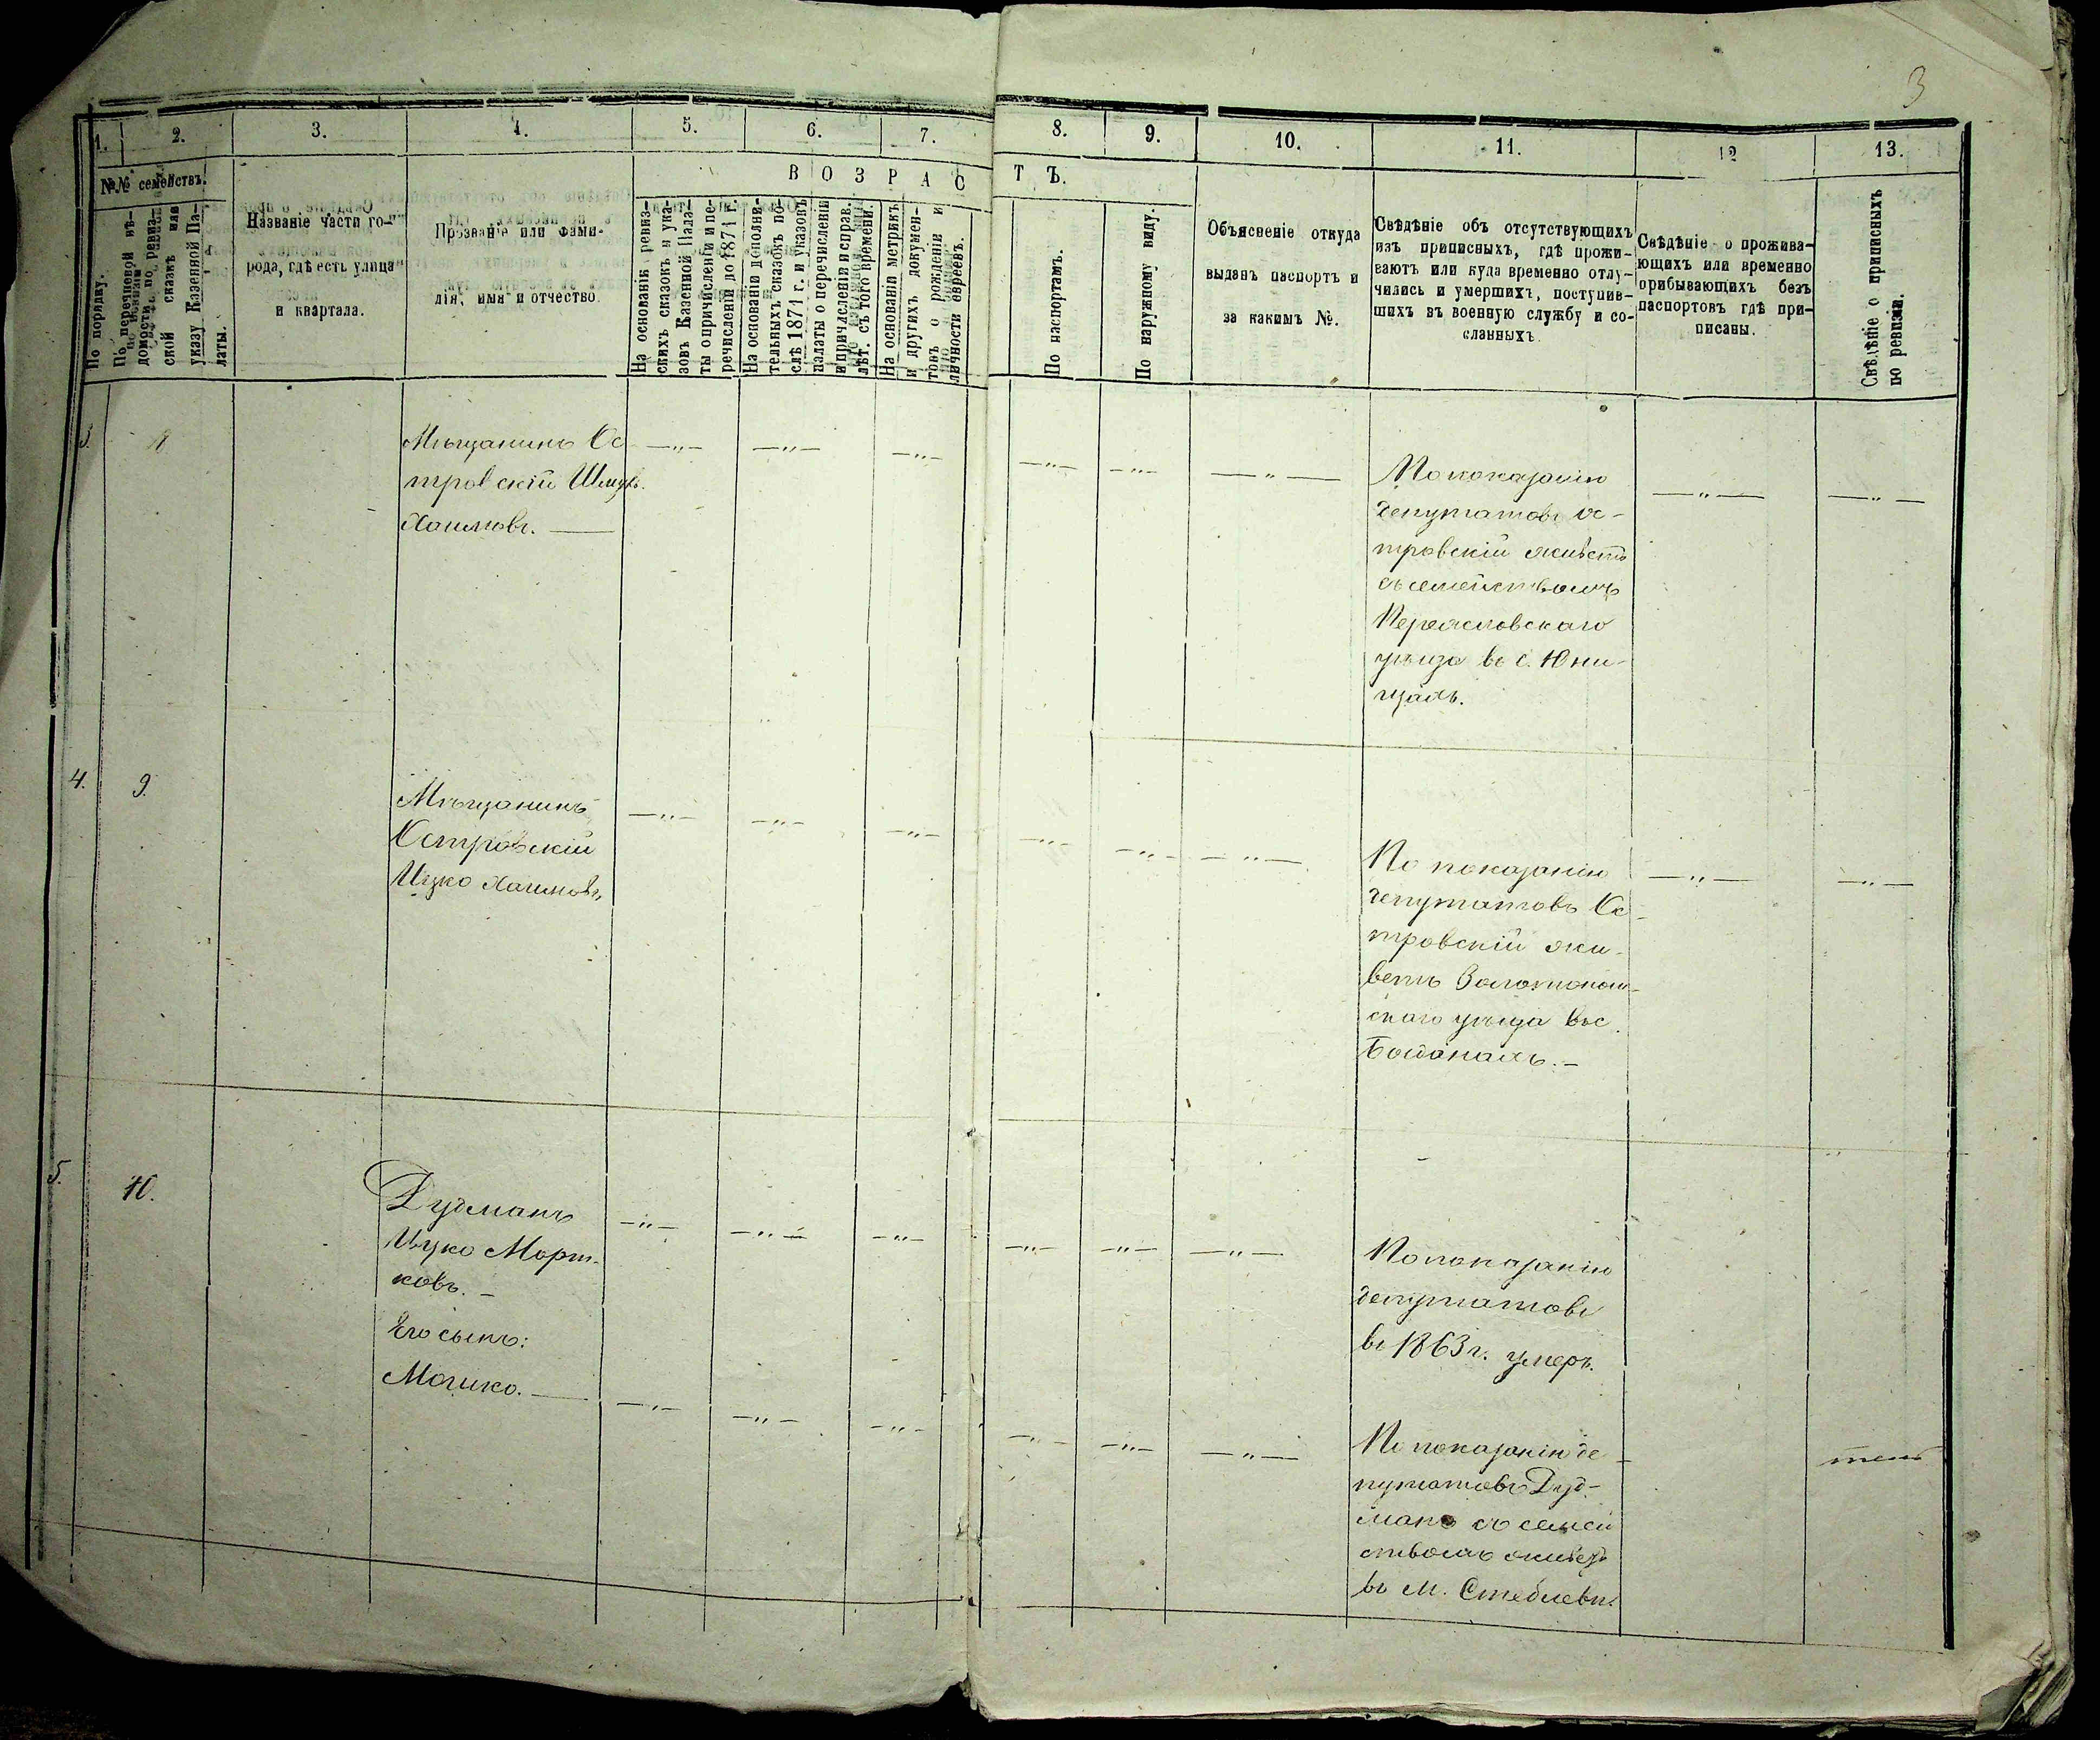 3
1.
2.
3.
4.
5.
6.
7.
8.
9.
10.
11.
12
13.
№№ семействъ.
ВОЗРАСТЪ.
По порядку.
По перечневой вѣ-
домости по ревиз-
ской сказкѣ или
указу Казенной Па-
латы.
Названіе части го-
рода, гдѣ есть улица
и квартала.
Прозваніе или фами-
лія, имя и отчество.
На основаніи ревиз-
скихъ сказокъ и ука-
зовъ Казенной Пала-
ты о причисленіи и пе-
речисленіи до 1871 г.
На основаніи дополни-
тельныхъ сказокъ по-
слѣ 1871 г. и указовъ
палаты о перечисленіи
и причисленіи и справ.
лѣт. съ того времени.
На основаніи метрикъ
и другихъ докумен-
товъ о рожденіи и
личности евреевъ.
По паспортамъ.
По наружному виду.
Объясненіе откуда
выданъ паспортъ и
за какимъ №.
Свѣдѣніе объ отсутствующихъ
изъ приписныхъ, гдѣ прожи-
ваютъ или куда временно отлу-
чились и умершихъ, поступив-
шихъ въ военную службу и со-
сланныхъ.
Свѣдѣніе о прожива-
ющихъ или временно
прибывающихъ безъ
паспортовъ гдѣ при-
писаны.
Свѣдѣніе о приписныхъ
по ревизіи.
3.
Мѣщанинъ Ос
тровскій Шмуль
Хаимовъ.
По показанію
депутатовъ Ос-
тровскій живетъ
съ семействомъ
Переяславского
уѣзда въ с. Юни-
щахъ.
4.
9.
Мѣщанинъ
Островскій
Ицко Хаимовъ
По показанію
депутатовъ Ос-
тровскій жи-
ветъ Золотонош-
скаго уѣзда въ с.
Богданахъ.
5.
10.
Дудманъ
ИцкоМорт-
ковъ.
Его сынъ:
Мошко.
По показанію
депутатовъ
въ 1863 г. умеръ.
По показанію де
путатовъ Дуд-
манъ съ семей
ствомъ живетъ
въ м. Стеблевѣ.